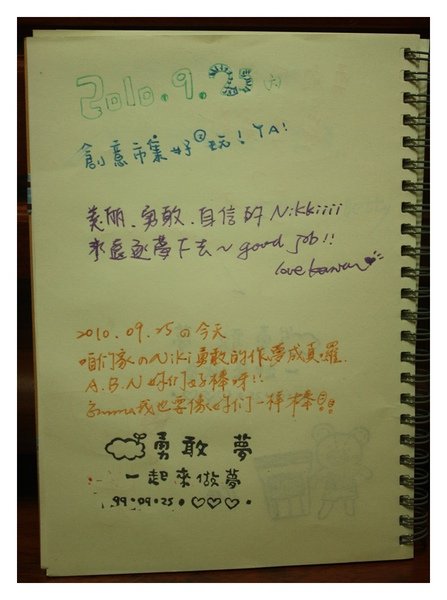 2010.9.25 (六)
創意市集好②玩！YA！
美丽、勇敢、自信的Nikkiiii
永遠逐夢下去～good job!!
Love
2010.09.25の今天
咱們家のNiki勇敢的作夢成真囉.
A.B.N 妳们好棒呀!!
我也要像妳们一样棒!!
勇敢 夢
一起來做夢
.99.09.25.♡♡♡.